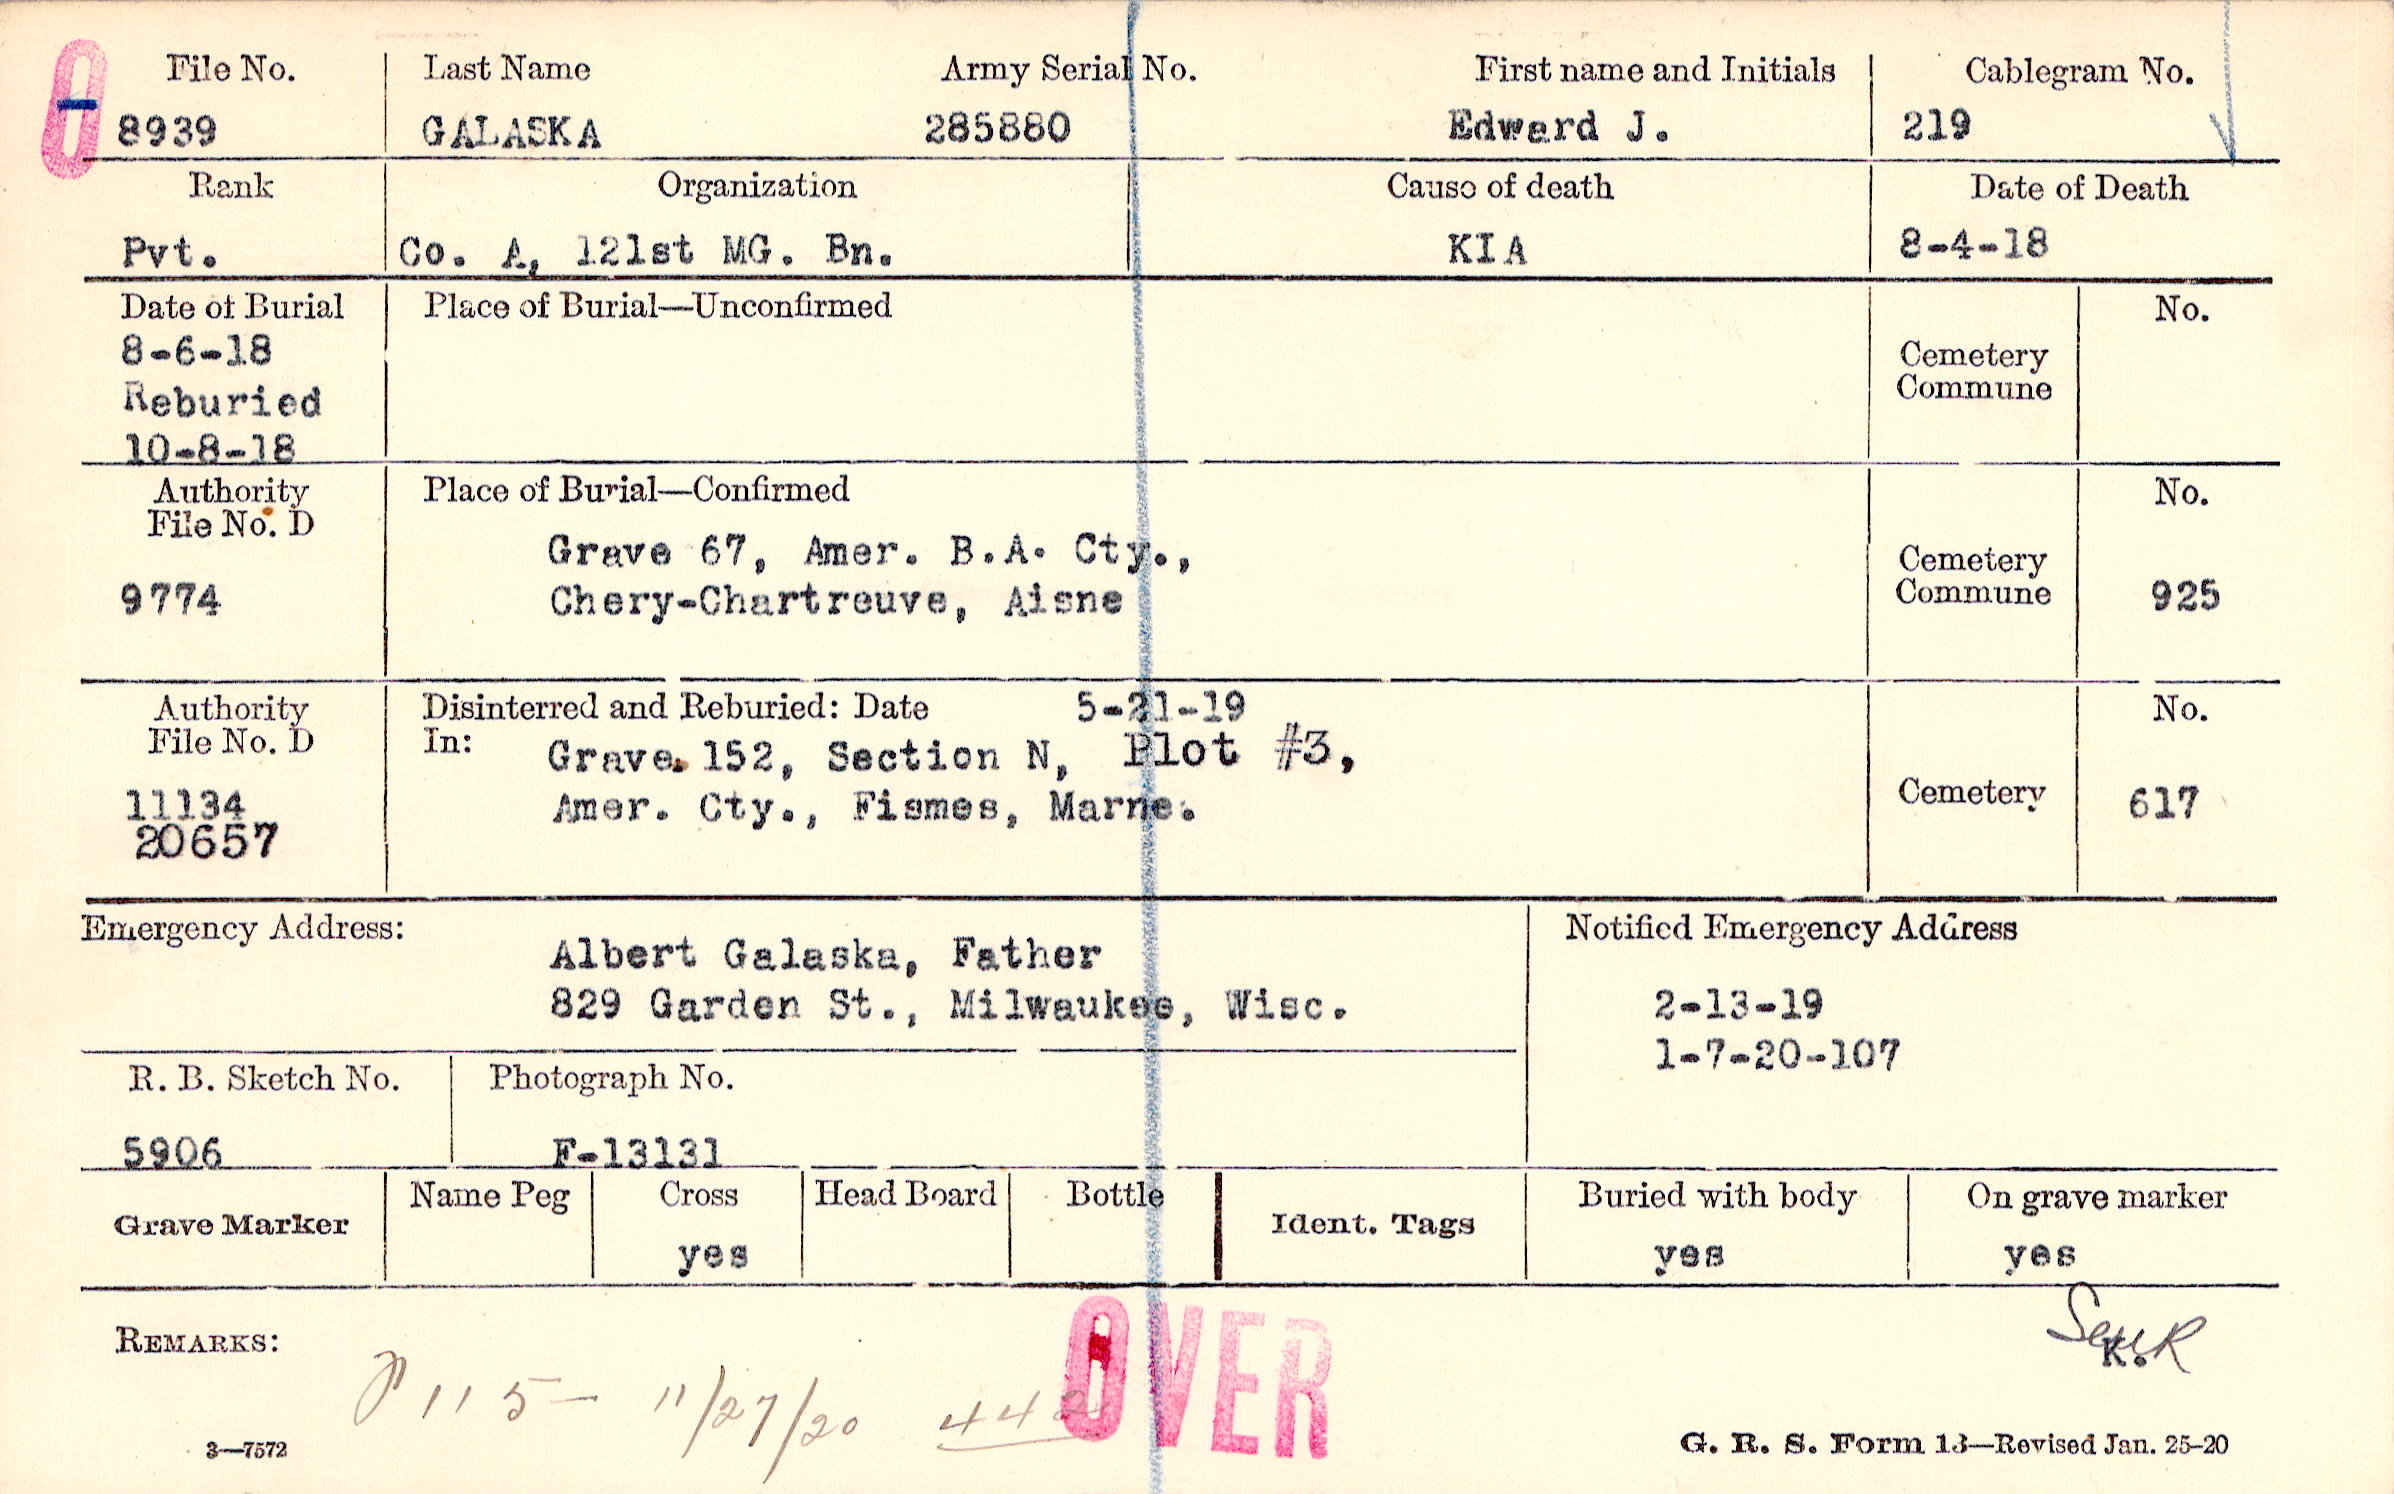 File No. Last Name Army Serial No. First name and Initials Cablegram No.
8939 GALASKA 285880 Edward J. 219
Rank Organization Cause of death Date of Death
Pvt. Co. A, 121st MG. Bn. KIA 8-4-18
Date of Burial Place of Burial—Unconfirmed No.
8-6-18
Reburied
10-8-18
Cemetery
Commune
Authority Place of Burial—Confirmed No.
File No. D
Grave 67, Amer. B.A. Cty.,
9774 Chery-Chartreuve, Aisne
Cemetery
Commune 925
Authority Disinterred and Reburied: Date 5-21-19 No.
File No. D In: Grave 152, Section N, Plot #3,
11134 Amer. Cty., Fismes, Marne. Cemetery 617
20657
Emergency Address: Notified Emergency Address
Albert Galaska, Father
829 Garden St., Milwaukee, Wisc. 2-13-19
1-7-20-107
R. B. Sketch No. Photograph No.
5906 F-13131
Grave Marker Name Peg Cross Head Board Bottle Ident. Tags Buried with body On grave marker
yes yes yes
REMARKS: OVER K.
115- 11/27/20 442
3—7572 G. R. S. Form 13—Revised Jan. 25-20